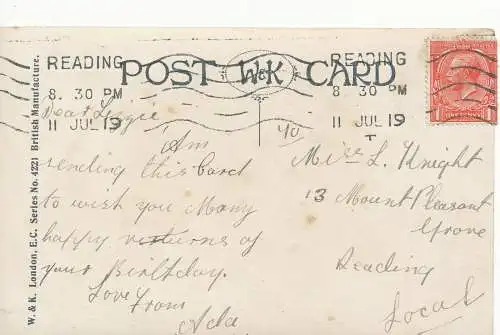 READING
8. 30 PM
11 JUL 19
POST W&K CARD
READING
8. 30 PM
11 JUL 19
T
W. & K. London, E.C. Series No. 4221 British Manufacture.
Dear Lizzie
Am
sending this Card
to wish you Many
happy returns of
your Birthday.
Love From
Ada
40
Miss L. Knight
13 Mount Pleasant
Grove
Reading
Local